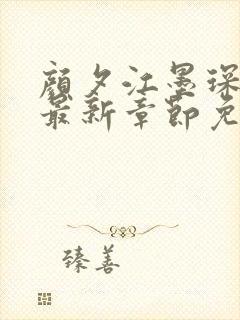 顾夕江墨琛
最新章节免
臻善